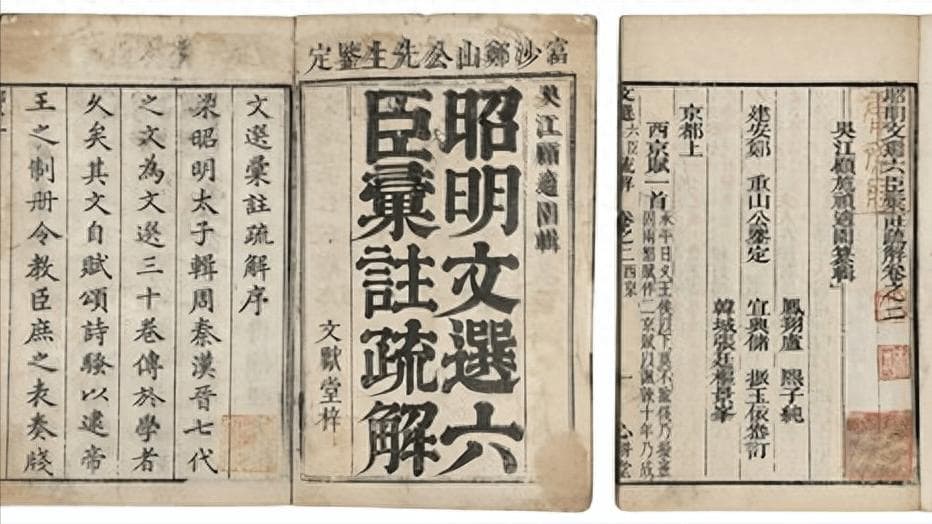 富沙鄭山公先生鑒定
吳江顧邁園輯
昭明文選六
臣彙註疏解
文獻堂梓
文選彙註疏解序
梁昭明太子輯周秦漢晉七代
之文為文選三十卷傳於學者
久矣其文自賦頌詩騷以逮帝
王之制册令教臣庶之表奏牋
昭明文選六臣彙註疏解卷之二
吳江顧施禎適園纂輯
建安鄭 重山公鑒定
鳳翔盧 熙子純
宜興儲 振玉依叅訂
韓城張廷樞景峯
京都上
西京賦一首
文選六臣彙解 卷之二西京 一 心耕堂